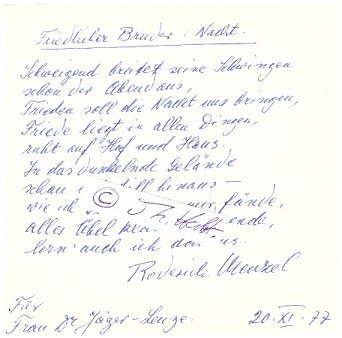 Friedlicher Bruder: Nacht.
Schweigend breitet seine Schwingen
schon der Abend aus,
Frieden soll die Nacht uns bringen,
Friede liegt in allen Dingen,
ruht auf Hof und Haus.
In das dunkelnde Gelände
schau ill hinaus –
wie ich © mir fände,
alles Übel ende,
lern' auch ich
Roderich Menzel
Für
Frau Dr. Jäger-Leuze.
20. XI. 77